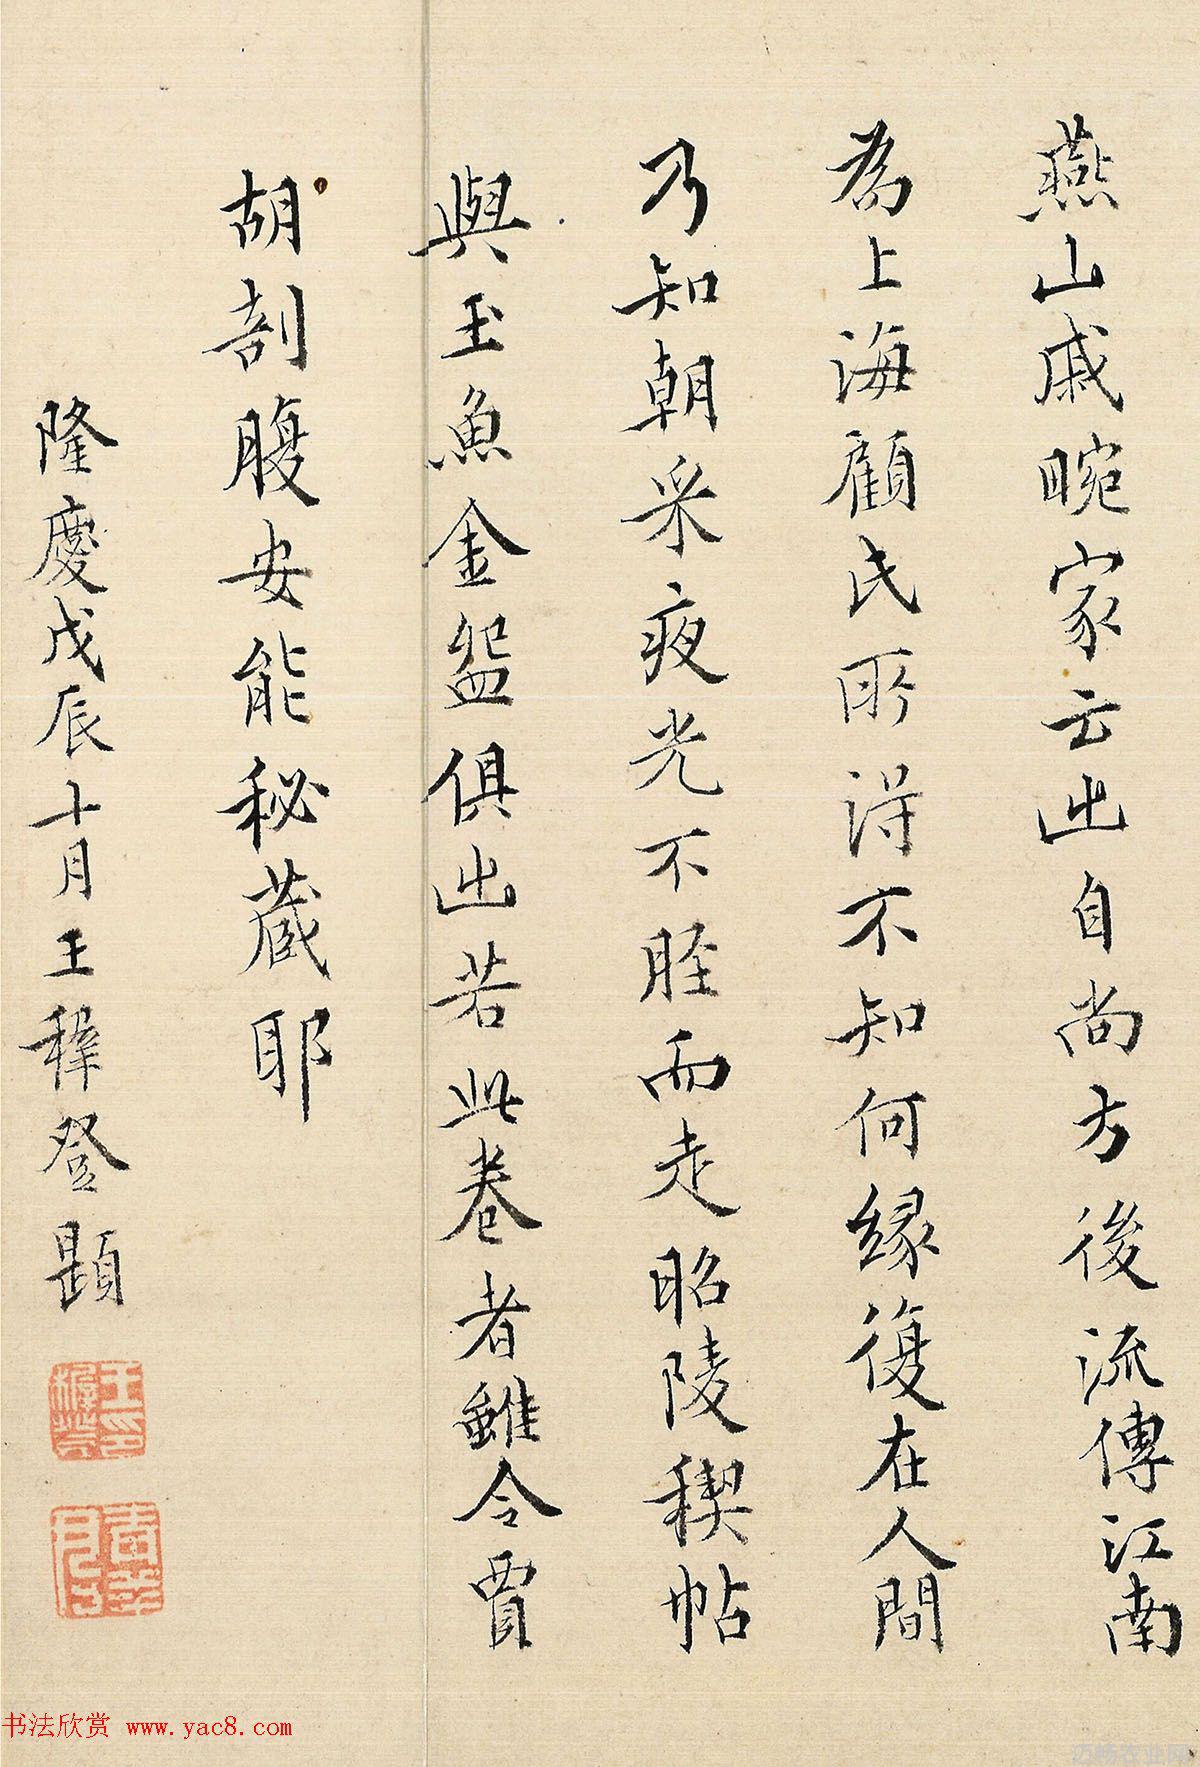 燕山戚畹家云出自尚方後流傳江南
為上海顧氏所得不知何緣復在人間
乃知朝采夜光不脛而走昭陵稧帖
與玉魚金盌俱出若此卷者雖令賈
胡剖腹安能秘藏耶
隆慶戊辰十月王穉登題
书法欣赏 www.yac8.com